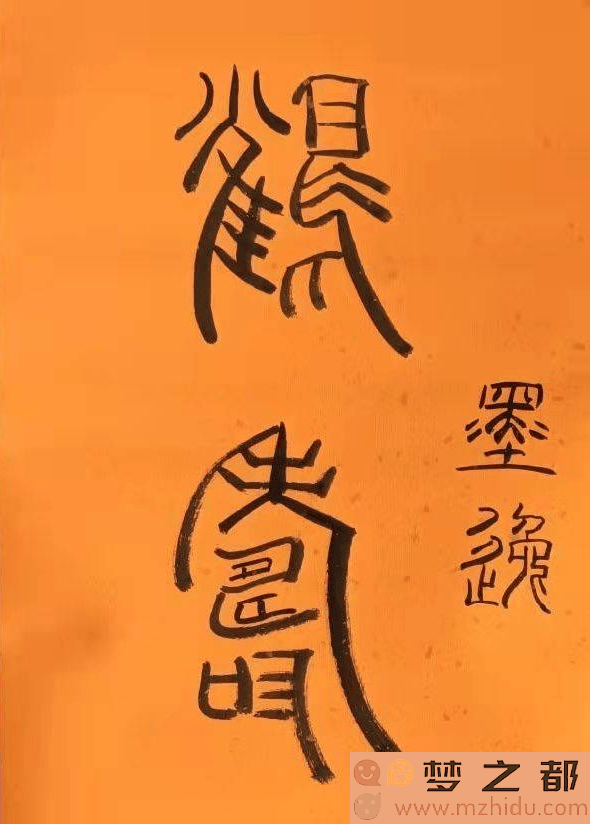 鶴壽
墨逸
梦之都
www.mzhidu.com